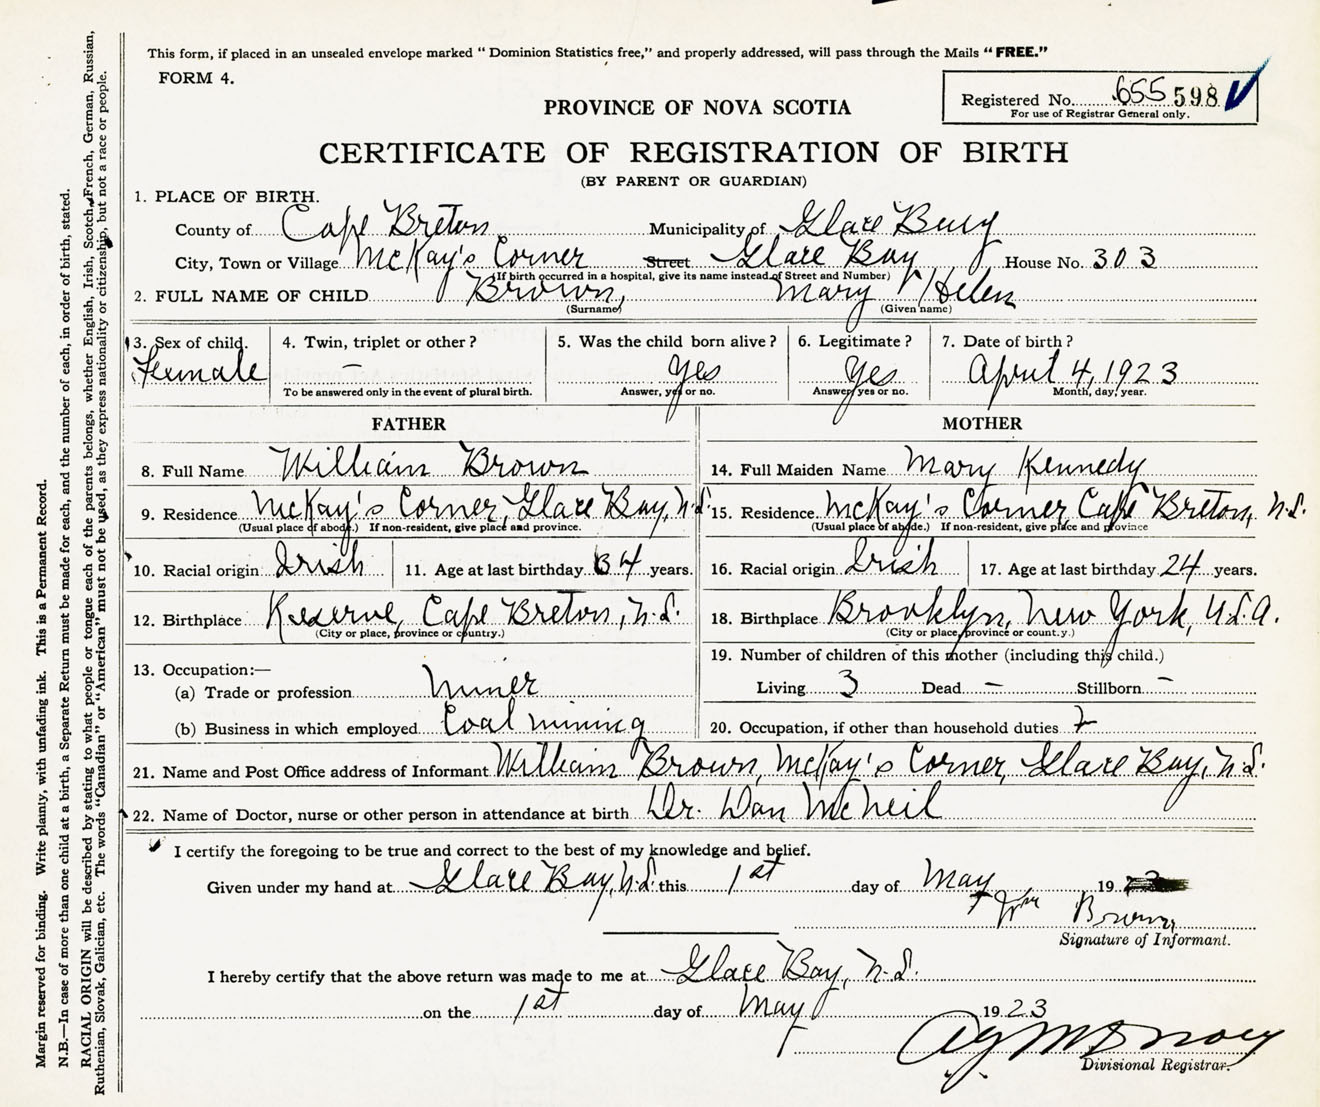 This form, if placed in an unsealed envelope marked "Dominion Statistics free," and properly addressed, will pass through the Mails "FREE."
FORM 4.
Registered No. 655 598
For use of Registrar General only.
PROVINCE OF NOVA SCOTIA
CERTIFICATE OF REGISTRATION OF BIRTH
(BY PARENT OR GUARDIAN)
1. PLACE OF BIRTH.
County of Cape Breton Municipality of Glace Bay
City, Town or Village McKay's Corner Street Glace Bay House No. 303
(If birth occurred in a hospital, give its name instead of Street and Number)
2. FULL NAME OF CHILD Brown, Mary Helen
(Surname) (Given name)
3. Sex of child. 4. Twin, triplet or other? 5. Was the child born alive? 6. Legitimate? 7. Date of birth?
Female — Yes Yes April 4, 1923
To be answered only in the event of plural birth. Answer, yes or no. Answer, yes or no. Month, day, year.
FATHER
8. Full Name William Brown
9. Residence McKay's Corner, Glace Bay, N.S.
(Usual place of abode.) If non-resident, give place and province.
10. Racial origin Irish 11. Age at last birthday 34 years.
12. Birthplace Reserve, Cape Breton, N.S.
(City or place, province or country.)
13. Occupation:—
(a) Trade or profession Miner
(b) Business in which employed Coal mining
MOTHER
14. Full Maiden Name Mary Kennedy
15. Residence McKay's Corner Cape Breton, N.S.
(Usual place of abode.) If non-resident, give place and province
16. Racial origin Irish 17. Age at last birthday 24 years.
18. Birthplace Brooklyn, New York, U.S.A.
(City or place, province or count.y.)
19. Number of children of this mother (including this child.)
Living 3 Dead — Stillborn —
20. Occupation, if other than household duties
21. Name and Post Office address of Informant William Brown, McKay's Corner, Glace Bay, N.S.
22. Name of Doctor, nurse or other person in attendance at birth Dr. Dan McNeil
I certify the foregoing to be true and correct to the best of my knowledge and belief.
Given under my hand at Glace Bay, N.S. this 1st day of May 1923
Wm Brown
Signature of Informant.
I hereby certify that the above return was made to me at Glace Bay, N.S.
on the 1st day of May 1923
Divisional Registrar.
Margin reserved for binding. Write plainly, with unfading ink. This is a Permanent Record.
N.B.—In case of more than one child at a birth, a Separate Return must be made for each, and the number of each, in order of birth, stated.
RACIAL ORIGIN will be described by stating to what people or tongue each of the parents belongs, whether English, Irish, Scotch, French, German, Russian,
Ruthenian, Slovak, Galician, etc. The words "Canadian" or "American" must not be used, as they express nationality or citizenship, but not a race or people.